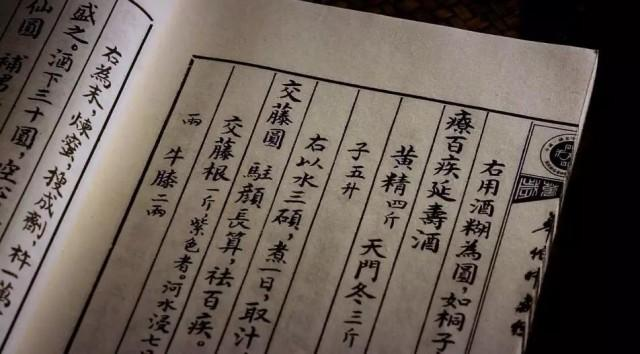 右用酒糊為圓,如桐子
療百疾延壽酒
黃精四斤 天門冬三斤
子五升
右以水三碩,煮一日,取汁
交藤圓 駐顏長算,祛百疾。
交藤根一斤紫色者。河水浸七日
兩 牛膝二兩
右為末,煉蜜,搜成劑,杵一萬
盛之。酒下三十圓,空
仙圓 補男